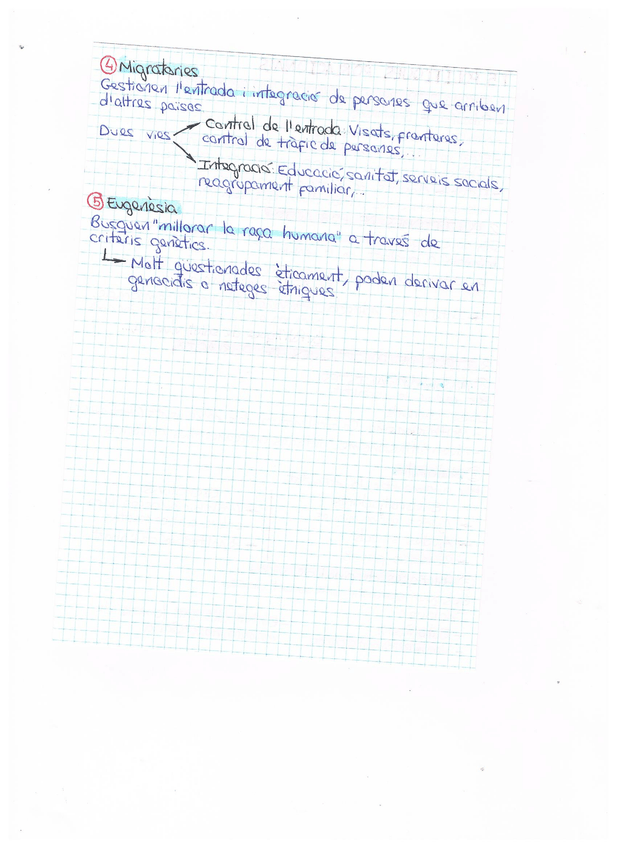 4 Migratories
Gestionen l'entrada i integració de persones que arriben
d'altres països.
Dues vies
Control de l'entrada: Visats, fronteres,
control de tràfic de persones,...
Integració: Educació, sanitat, serveis socials,
reagrupament familiar,..
5 Eugenèsia
Busquen "millorar la raça humana" a través de
criteris genètics.
Molt qüestionades èticament, poden derivar en
genocidis o neteges ètniques